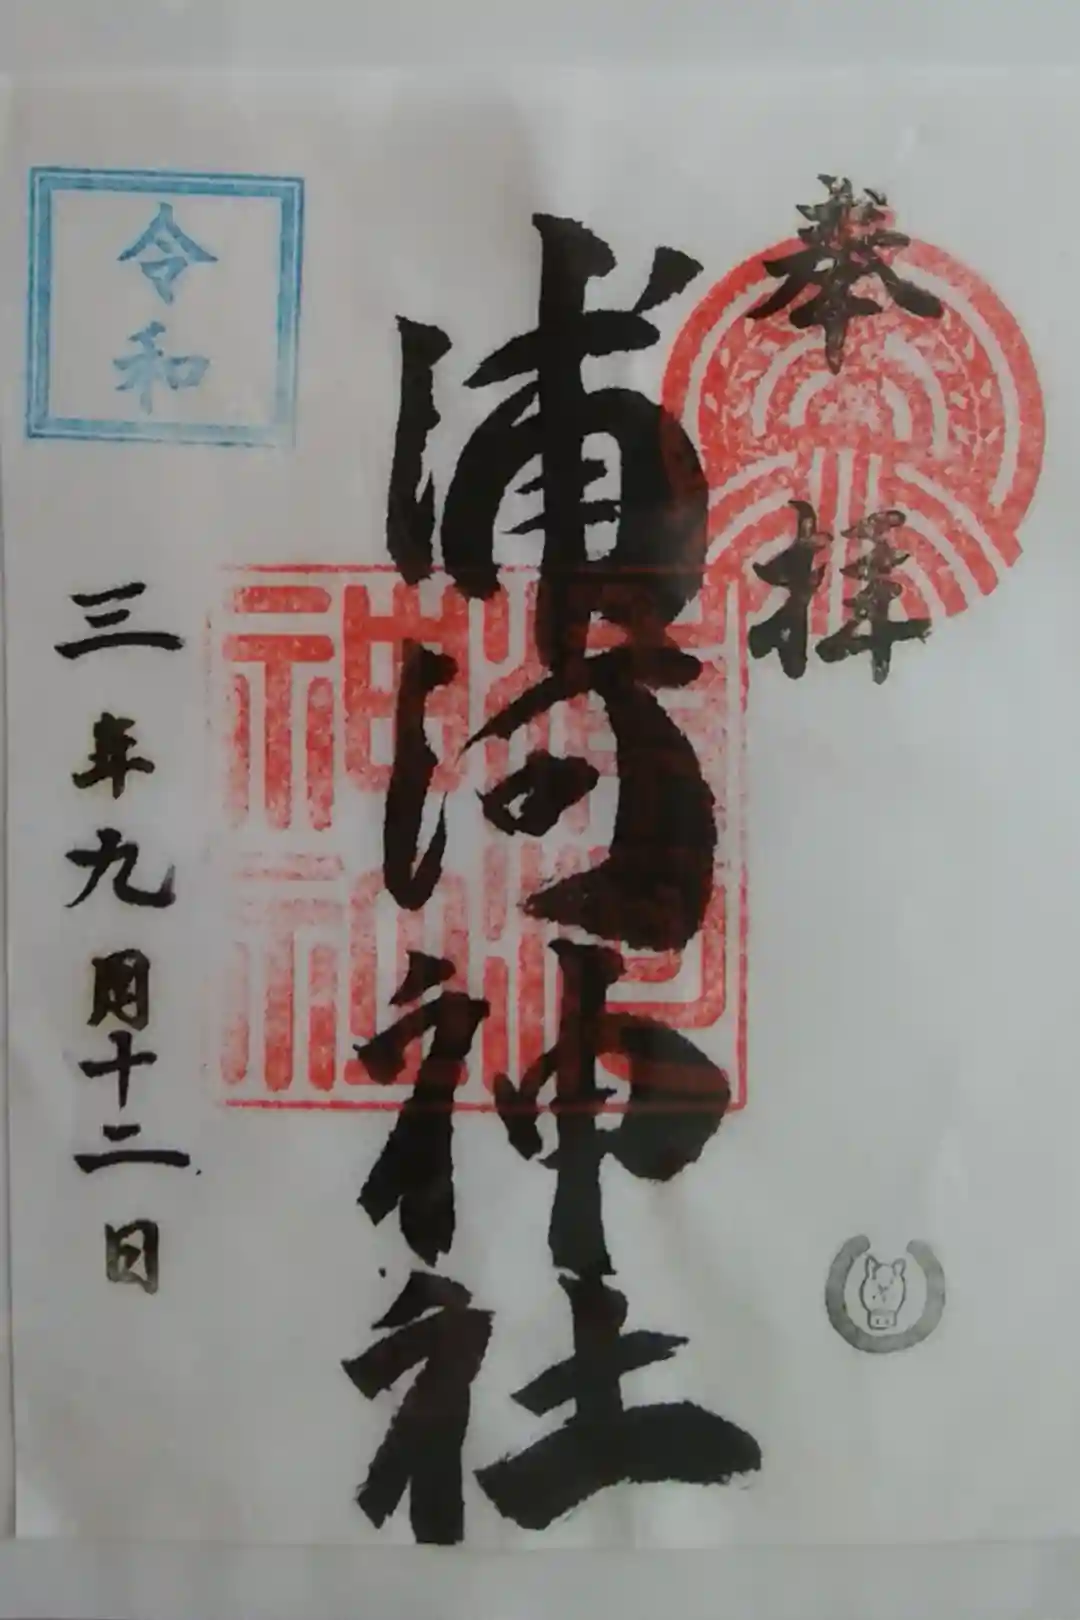 奉拝
浦河神社
令和
三年九月十二日
浦河神社